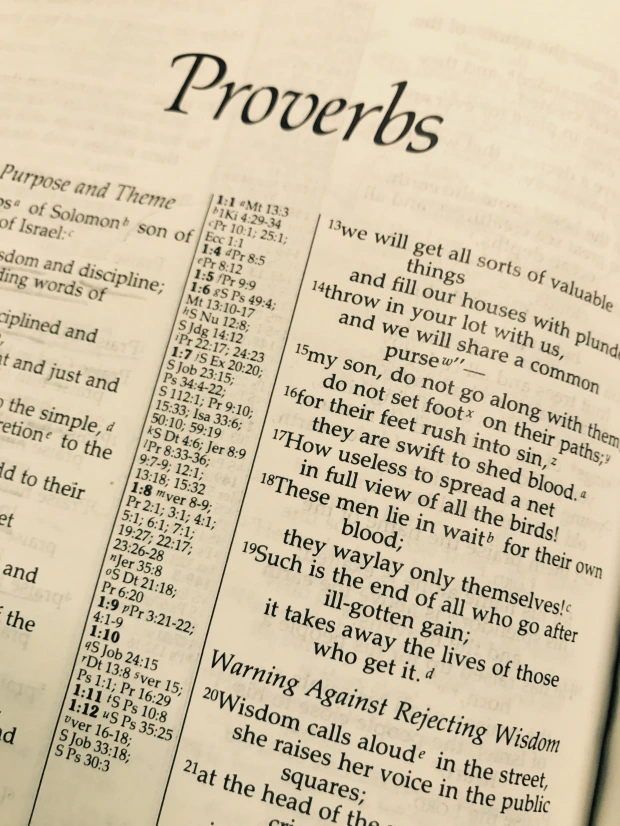 Proverbs
Purpose and Theme
of Solomonᵇ son of
of Israel:ᶜ
and discipline;
words of
and
and just and
the simple, ᵈ
to the
to their
and
the
1:1 ᵃMt 13:3
ᵇ1Ki 4:29-34
ᶜPr 10:1; 25:1;
Ecc 1:1
1:4 ᵈPr 8:5
ᵉPr 8:12
1:5 ᶠPr 9:9
1:6 ᵍS Ps 49:4;
Mt 13:10-17
ʰS Nu 12:8;
S Jdg 14:12
ⁱPr 22:17; 24:23
1:7 ʲS Ex 20:20;
S Job 23:15;
Ps 34:4-22;
S 112:1; Pr 9:10;
15:33; Isa 33:6;
50:10; 59:19
ᵏS Dt 4:6; Jer 8:9
ˡPr 8:33-36;
9:7-9; 12:1;
13:18; 15:32
1:8 ᵐver 8-9;
Pr 2:1; 3:1; 4:1;
5:1; 6:1; 7:1;
19:27; 22:17;
23:26-28
ⁿJer 35:8
ᵒS Dt 21:18;
Pr 6:20
1:9 ᵖPr 3:21-22;
4:1-9
1:10
qS Job 24:15
ʳDt 13:8 ˢver 15;
Ps 1:1; Pr 16:29
1:11 ᵗS Ps 10:8
1:12 ᵘS Ps 35:25
ᵛver 16-18;
S Job 33:18;
S Ps 30:3
¹³we will get all sorts of valuable
things
and fill our houses with
¹⁴throw in your lot with us,
and we will share a common
purseʷ”—
¹⁵my son, do not go along with them,
do not set footˣ on their paths;ʸ
¹⁶for their feet rush into sin,ᶻ
they are swift to shed blood.ᵃ
¹⁷How useless to spread a net
in full view of all the birds!
¹⁸These men lie in waitᵇ for their own
blood;
they waylay only themselves!ᶜ
¹⁹Such is the end of all who go after
ill-gotten gain;
it takes away the lives of those
who get it.ᵈ
Warning Against Rejecting Wisdom
²⁰Wisdom calls aloudᵉ in the street,
she raises her voice in the public
squares;
²¹at the head of the